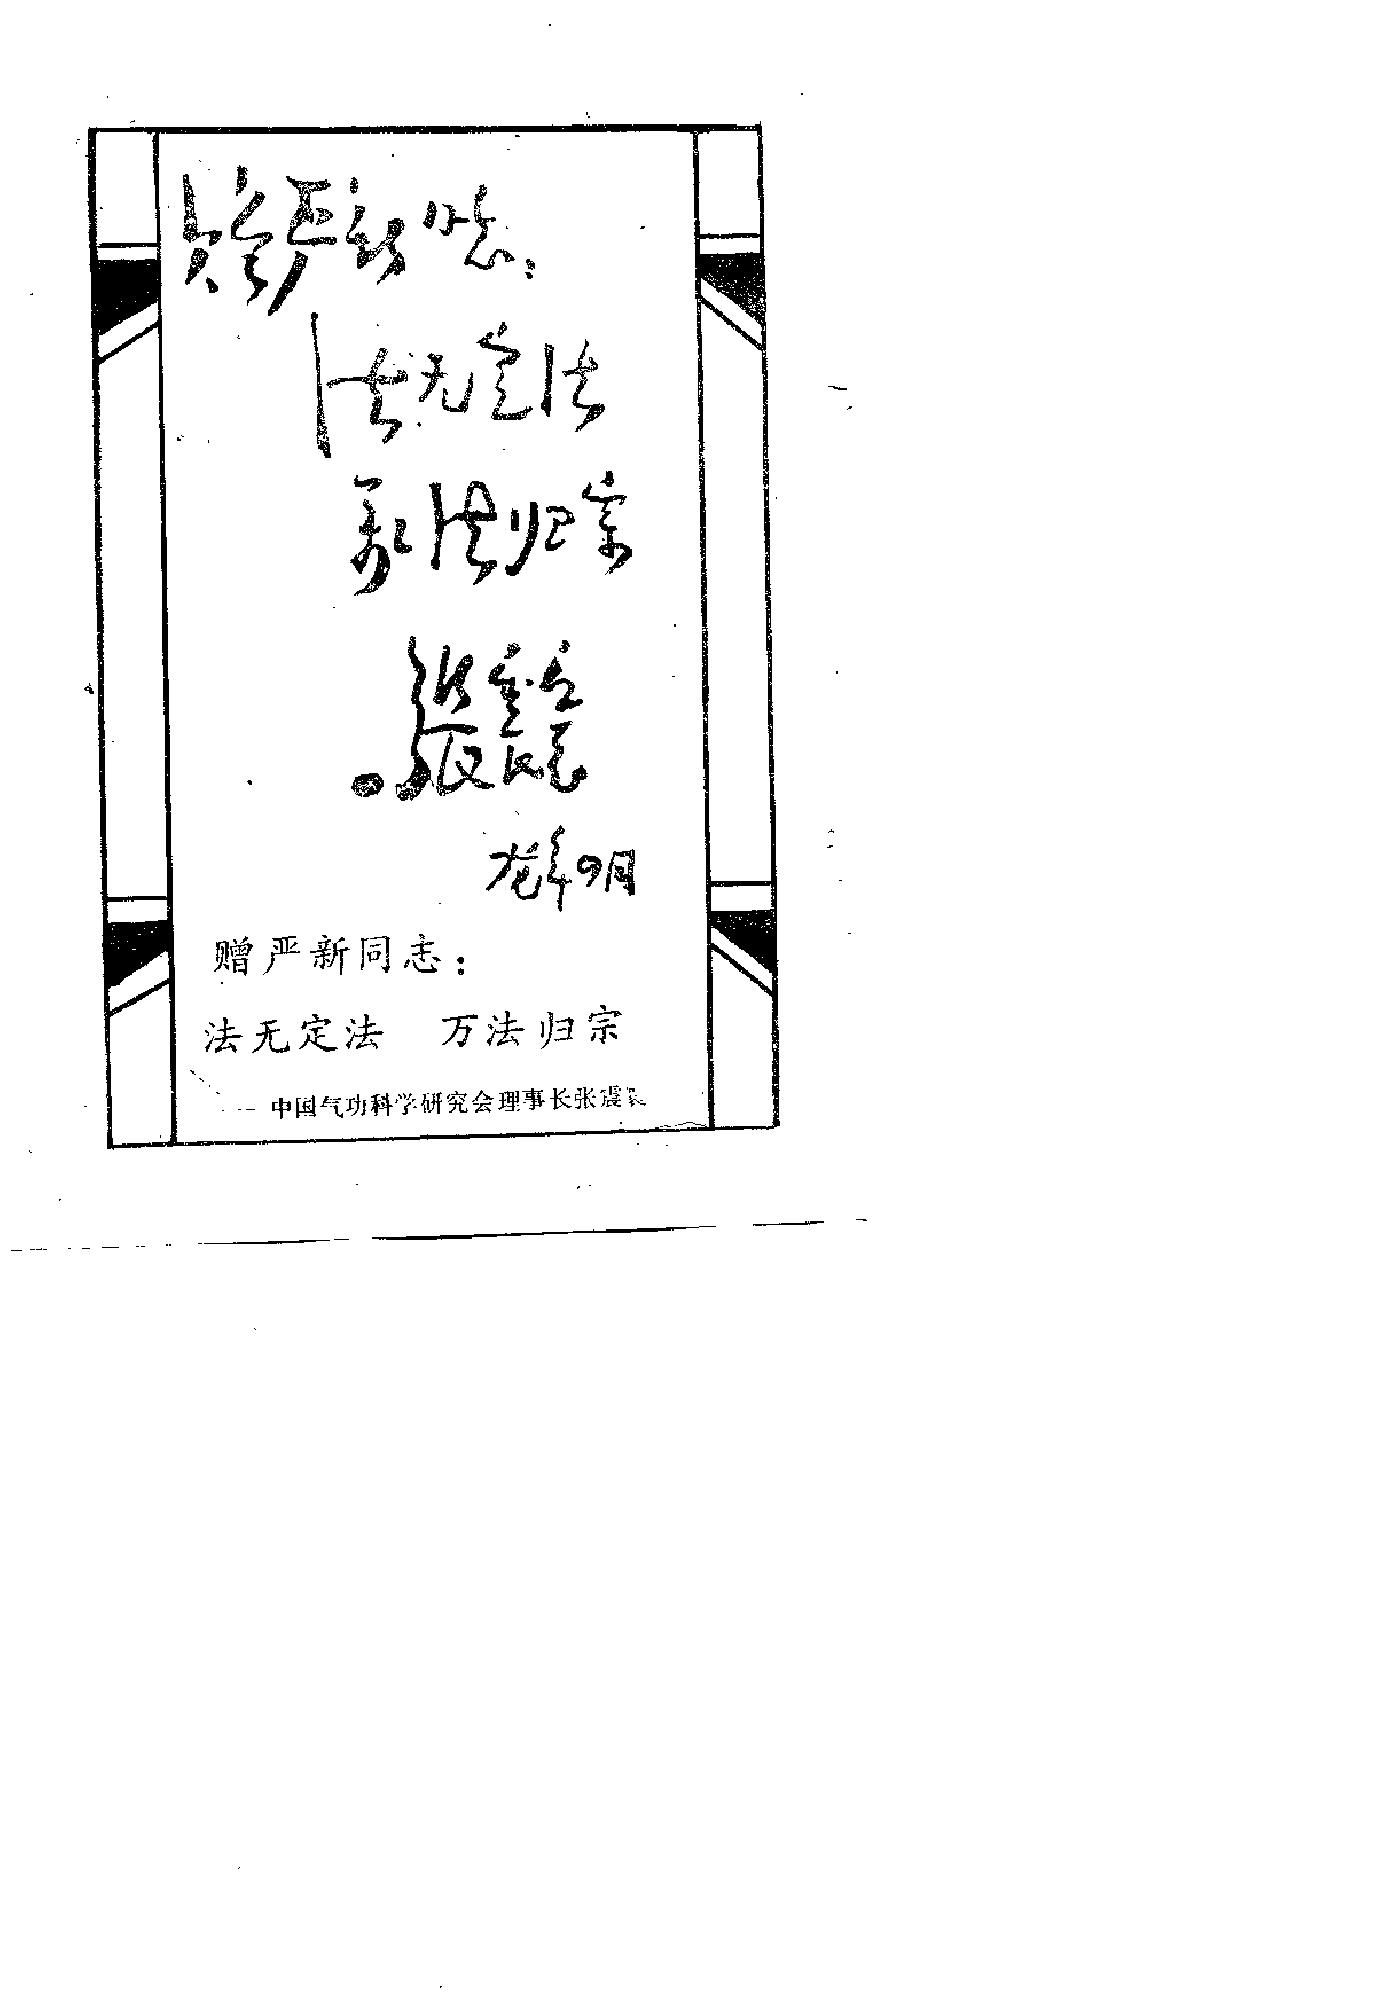 赠严新同志：
法无定法
万法归宗
张震寰
龙年四月
赠严新同志：
法无定法 万法归宗
中国气功科学研究会理事长张震寰